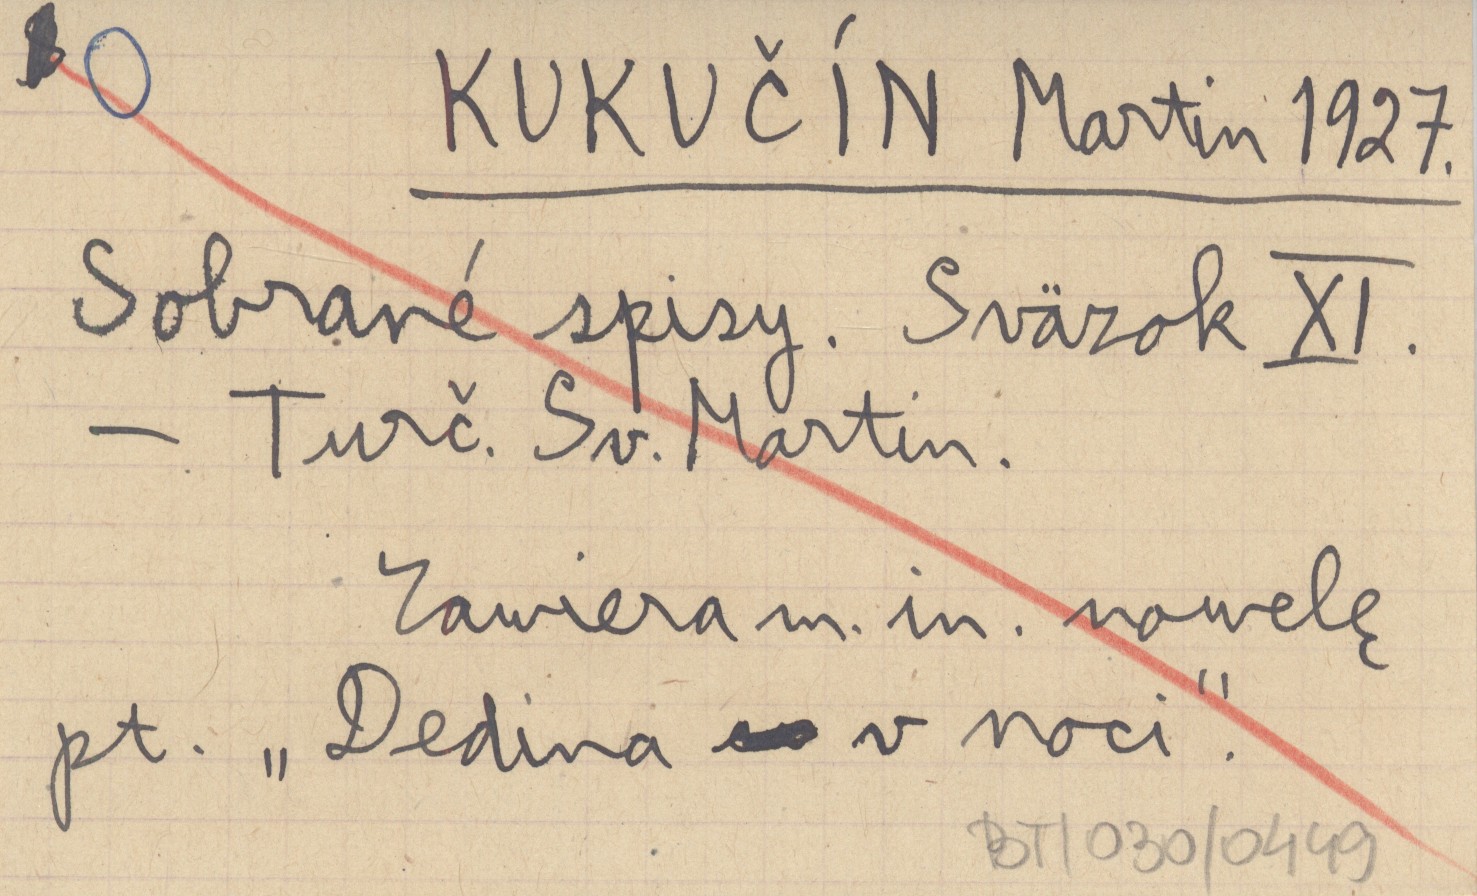 KUKUČÍN Martin 1927.
Sobrané spisy. Sväzok XI.
— Turč. Sv. Martin.
Zawiera m. in. nowelę
pt. „Dedina v noci".
BT/030/0449